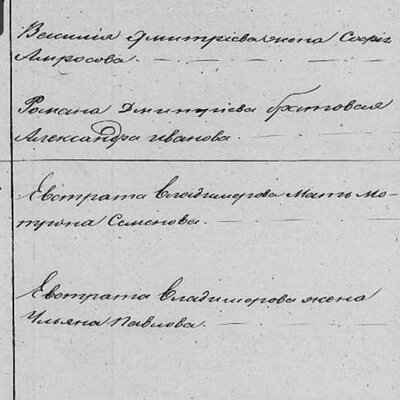 Василия Дмитріева жена Софья
Амросова.
Романа Дмитріева братовая
Александра Иванова.
Евстрата Владимерова Мать Мо-
трона Семенова.
Евстрата Владимерова жена
Ульяна Павлова.